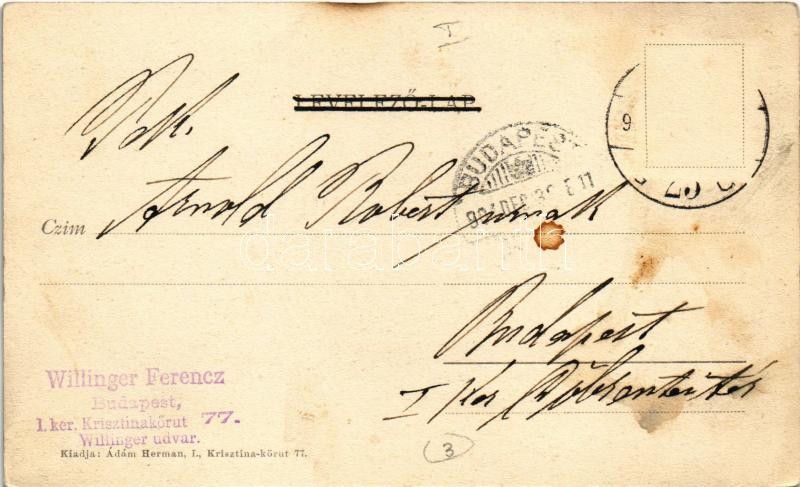 I
LEVELEZŐ-LAP
Arnold Robert urnak
Czim
BUDAPEST
904 DEC 3
9
darabanth
Budapest
I ker Döbrentei tér
Willinger Ferencz
Budapest,
I. ker. Krisztinakörut 77.
Willinger udvar.
Kiadja: Ádám Herman, I., Krisztina-körut 77.
3